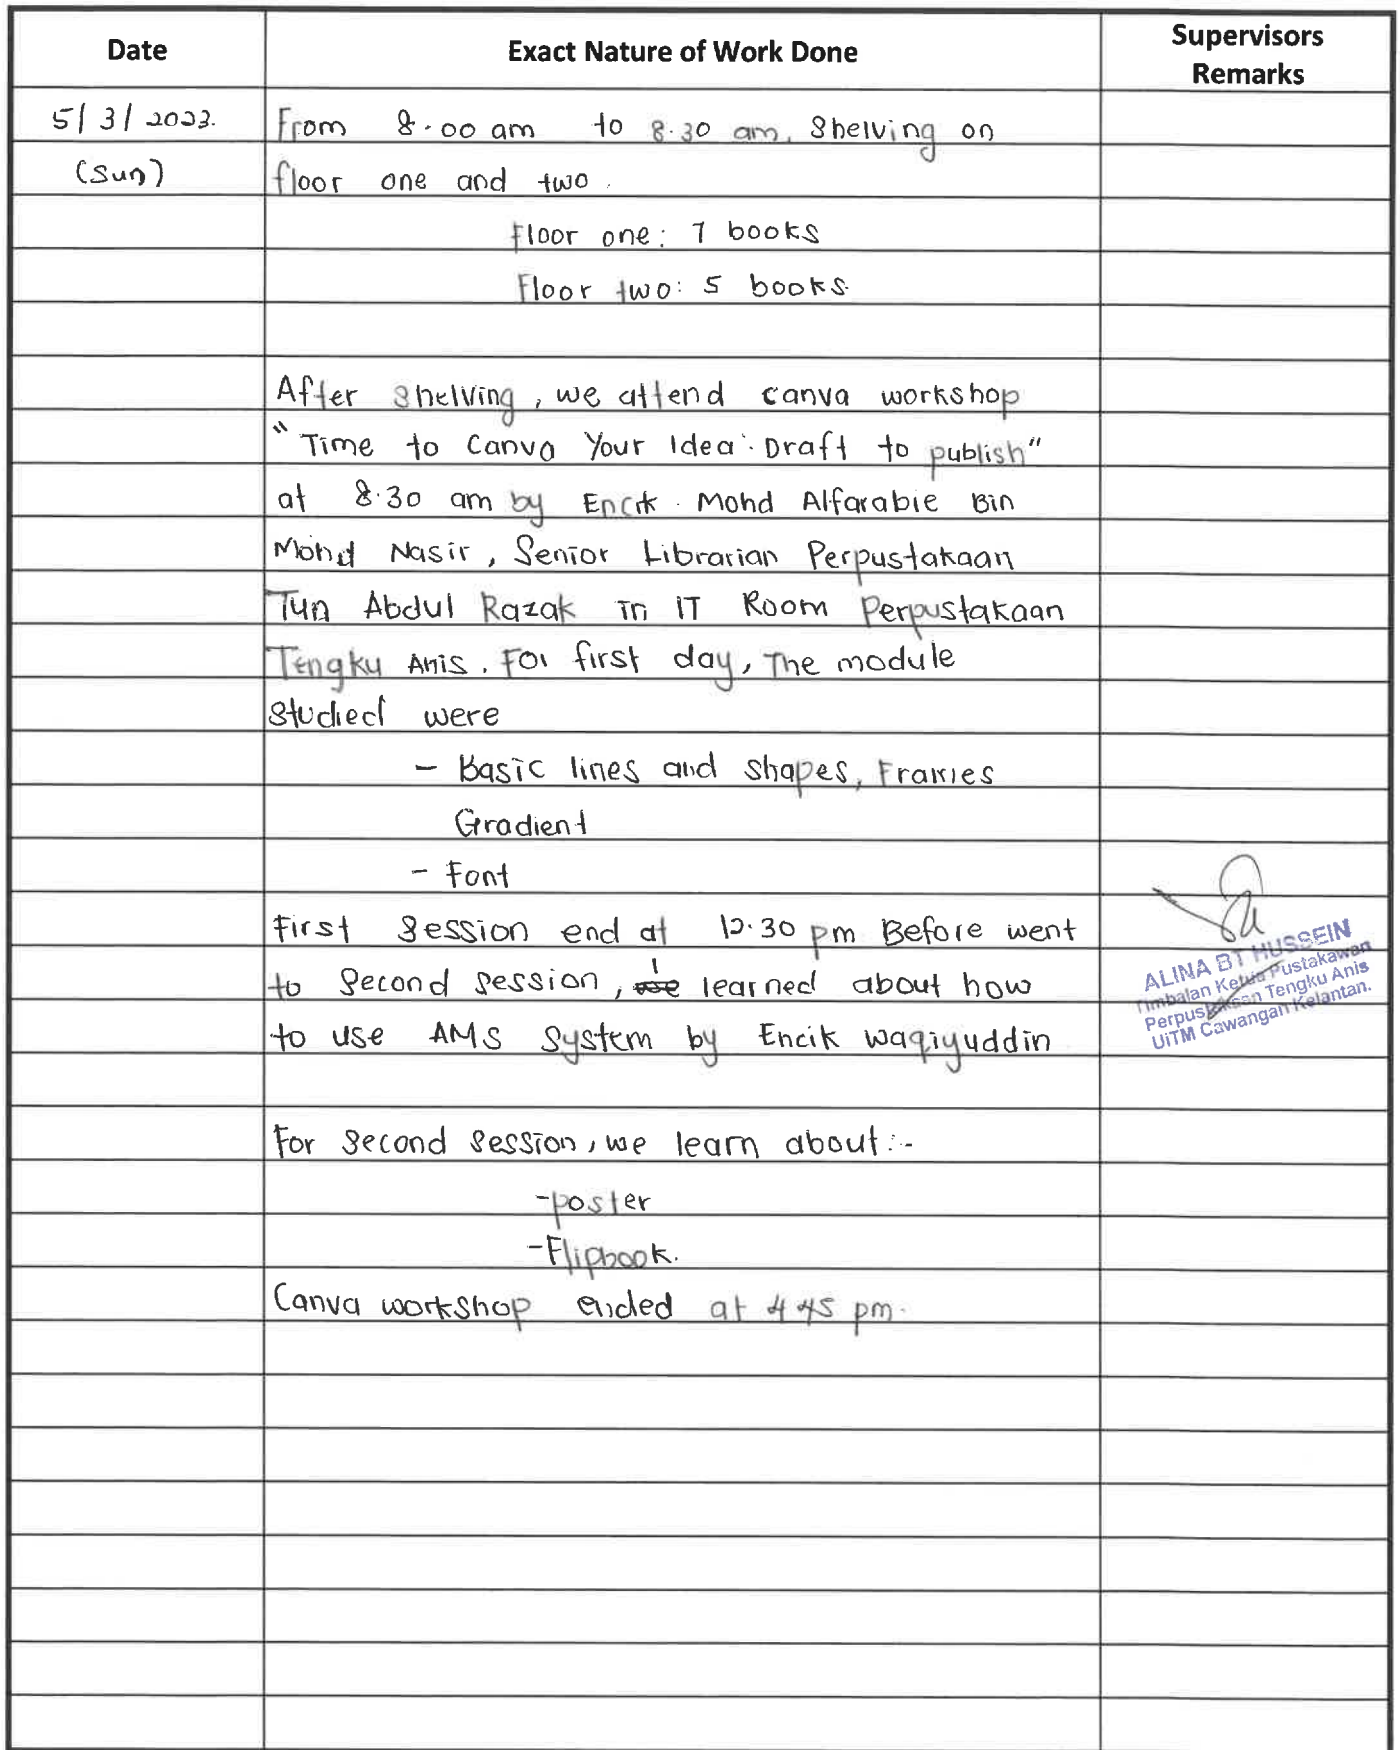 Date
Exact Nature of Work Done
Supervisors
Remarks
5/3/2023.
(Sun)
From 8.00 am to 8.30 am, Shelving on
floor one and two.
Floor one: 7 books
Floor two: 5 books.
After shelving, we attend canva workshop
"Time to Canva Your Idea: Draft to publish"
at 8.30 am by Encik. Mohd Alfarabie Bin
Mohd Nasir, Senior Librarian Perpustakaan
Tun Abdul Razak in IT Room Perpustakaan
Tengku Anis. For first day, The module
studied were
- Basic lines and shapes, Frames
Gradient
- Font
First Session end at 12.30 pm Before went
to second session, we I learned about how
to use AMS system by Encik Waqiyuddin
For second session, we learn about:-
-poster
-Flipbook.
Canva workshop ended at 4.45 pm.
ALINA BT HUSSEIN
Timbalan Ketua Pustakawan
Perpustakaan Tengku Anis
UiTM Cawangan Kelantan.